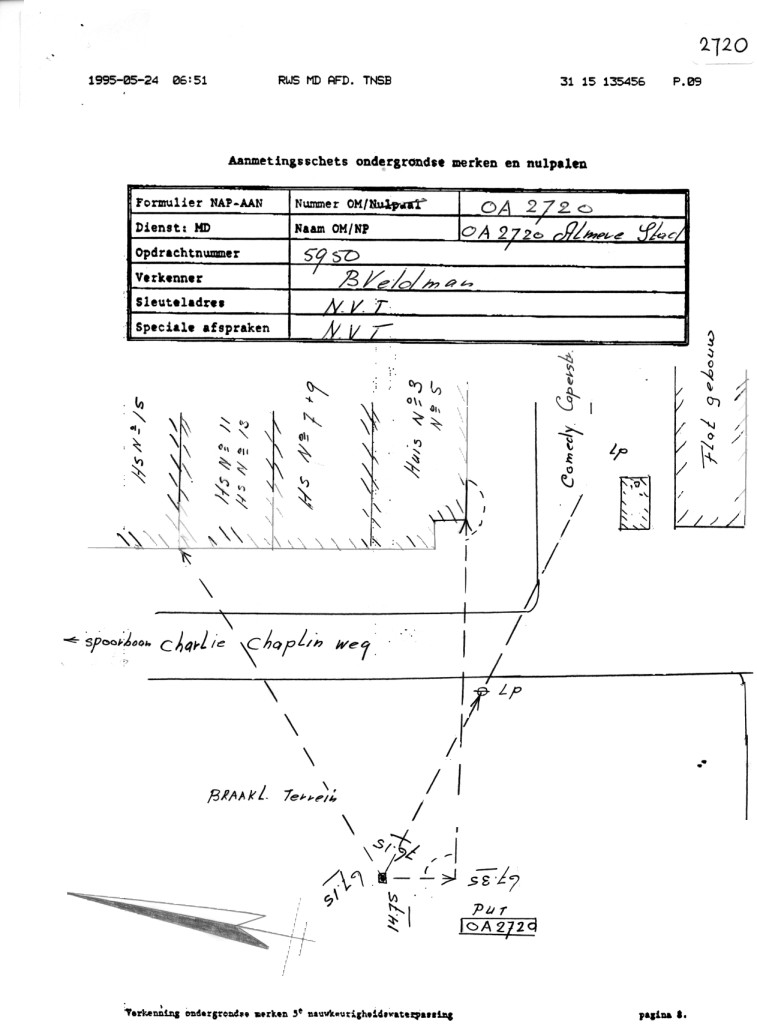 2720
1995-05-24 06:51 RWS MD AFD. TNSB 31 15 135456 P.09
Aanmetingsschets ondergrondse merken en nulpalen
Formulier NAP-AAN Nummer OM/Nulpaal OA 2720
Dienst: MD Naam OM/NP OA 2720 Almere Stad
Opdrachtnummer 5950
Verkenner B Veldman
Sleuteladres N.V.T
Speciale afspraken N.V.T
HS Nº 15
HS Nº 11
HS Nº 13
HS Nº 7+9
Huis Nº 3
Nº 5
Comedy Caperstr.
Lp
Flat gebouw
← spoorboom Charlie Chaplin weg
LP
BRAAKL. Terrein
67.15
14.75
67.35
PUT
OA2720
Verkenning ondergrondse merken 5e nauwkeurigheidswaterpassing pagina 8.